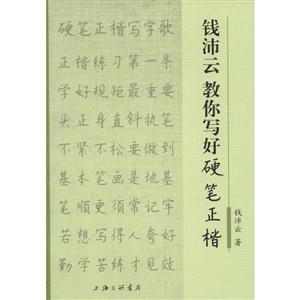 硬笔正楷写字歌
正楷练习第一条
学好规矩最重要
头正身直斜执笔
不紧不松要做到
基本笔画是地基
笔顺更须常记牢
若想写得人夸好
勤学苦练才见效
上海三联书店
钱沛云教你写好硬笔正楷
钱沛云 著